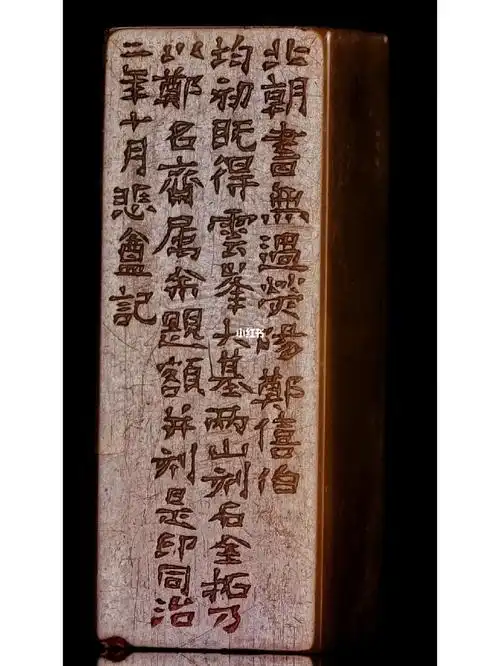 北朝書無過熒陽鄭僖伯
均初既得雲峯大基两山刻石全拓乃
以鄭名齋属余題額并刻是印同治
二年十月悲盦記
小红书